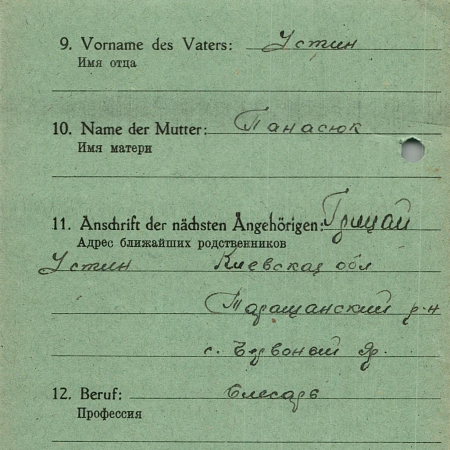 9. Vorname des Vaters: Устин
Имя отца
10. Name der Mutter: Панасюк
Имя матери
11. Anschrift der nächsten Angehörigen: Грицай
Адрес ближайших родственников
Устин Киевская обл
Таращанский р-н
с. Червоный Яр.
12. Beruf: Слесарь
Профессия